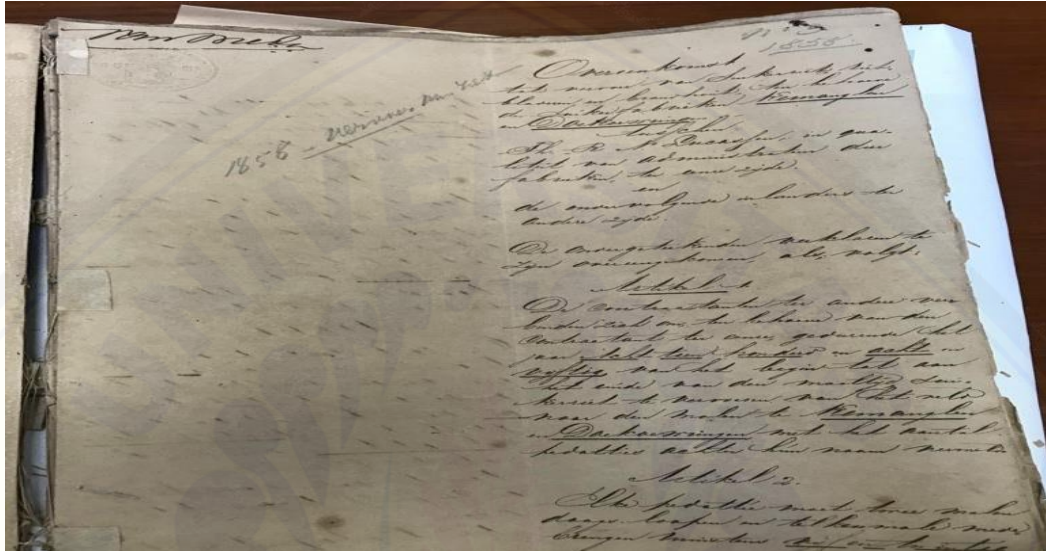 1858
1858
Overeenkomst
tot vervoer van Suikerriet, riet-
bladeren en brandhout, ten behoeve
der suikerfabrieken Kemanglen
en Doekoewringin
tusschen
Th. R. N. Lucassen, in qua-
liteit van administrateur dier
fabrieken, te eenre zijde
en
de ondervolgende inlanders ter
andere zijde.
De ondergeteekenden verklaren te
zijn overeengekomen, als volgt:
Artikel 1
De contractanten ter andere ver-
binden zich om ten behoeve van den
contractant ter eenre, gedurende het
jaar achttien honderd en acht en
vijftig van het begin tot aan
het einde van den maaltijd, Sui-
kerriet te vervoeren van het veld
naar den molen te Kemanglen
en Doekoewringin met het aantal
pedatties achter hun naam vermeld
Artikel 2.
Elke pedattie moet twee malen
daags loopen en telkenmale mede
brengen